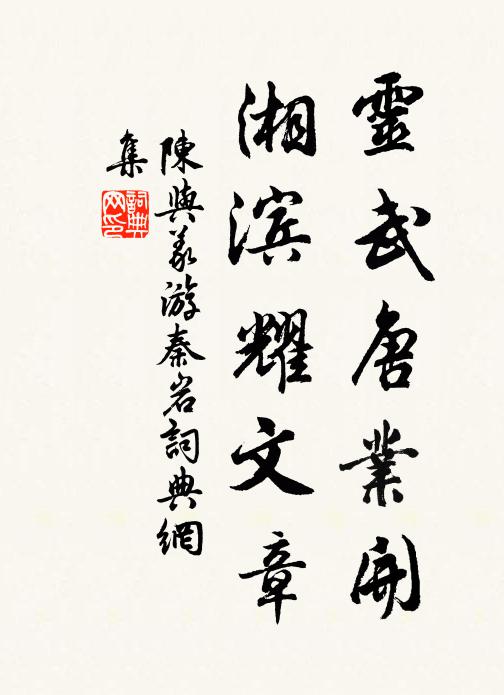 靈武唐業開
湘滨耀文章
陳與義游秦岩詞典網
集
詞典网印